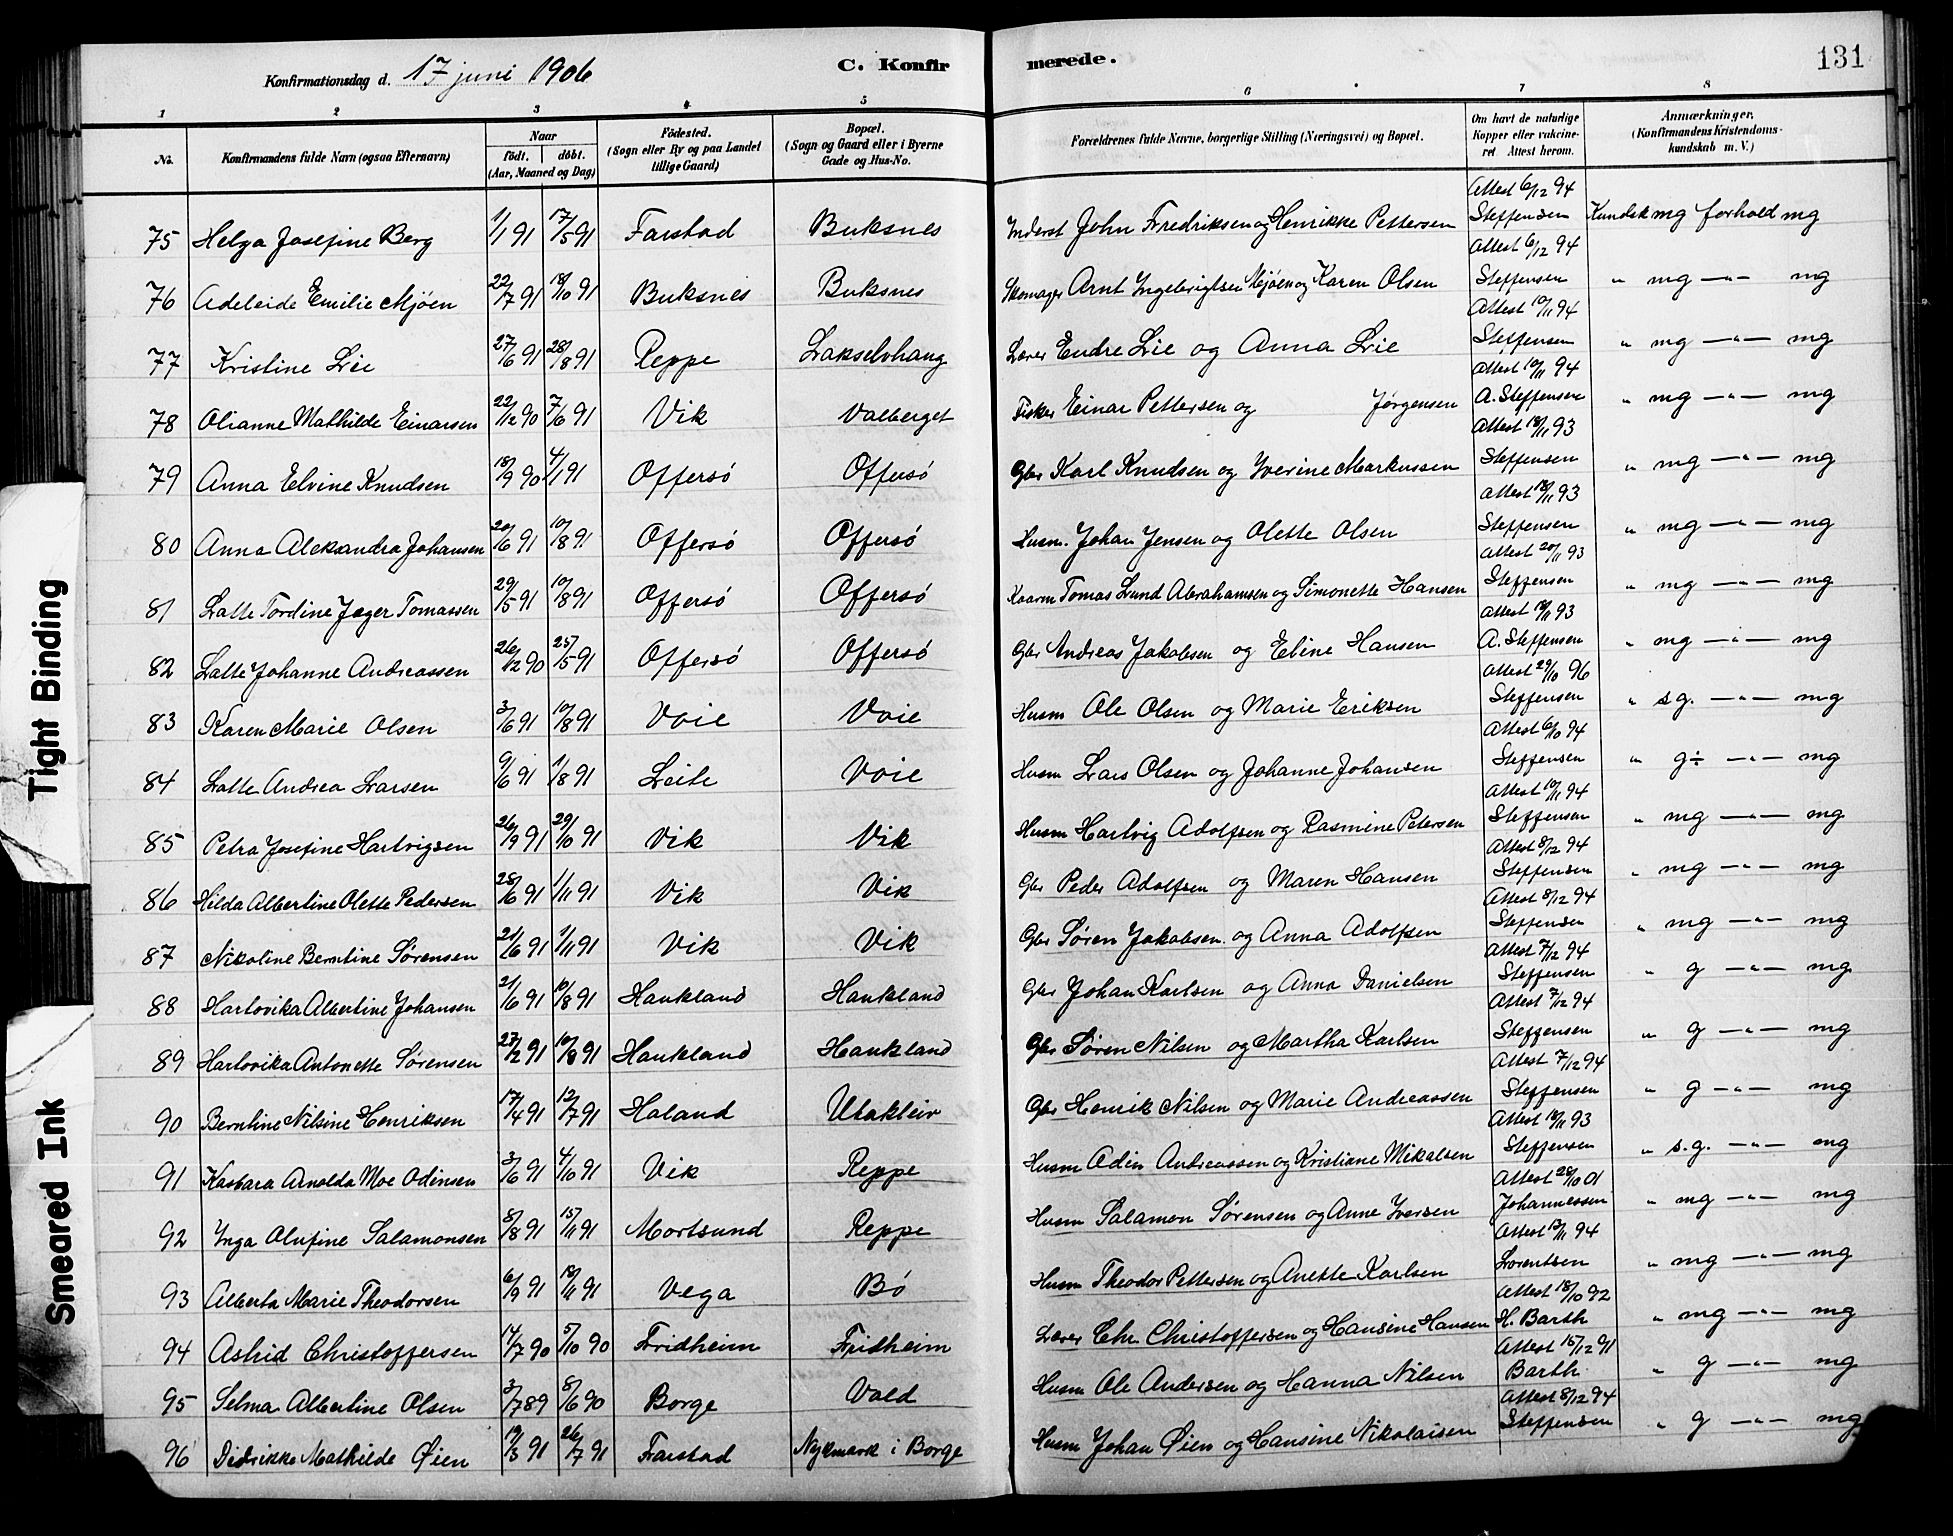 Konfirmationsdag d. 17 juni 1906 C. Konfirmerede. 131
1 2 3 4 5 6 7 8
No. Konfirmandens fulde Navn (ogsaa Efternavn) Naar født. døbt. (Aar, Maaned og Dag) Fødested. (Sogn eller By og paa Landet tillige Gaard) Bopæl. (Sogn og Gaard eller i Byerne Gade og Hus-No. Forældrenes fulde Navne, borgerlige Stilling (Næringsvei) og Bopæl. Om havt de naturlige Kopper eller vakcineret Attest herom. Anmærkninger. (Konfirmandens Kristendomskundskab m. V.)
75 Helga Josefine Berg 1/1 91 17/5 91 Farstad Buksnes Inderst John Fredriksen og Henrikke Pettersen Attest 6/12 94 Steffensen Kundsk mg forhold mg
76 Adeleide Emilie Mjøen 22/7 91 18/10 91 Buksnes Buksnes Skomager Arnt Ingebrigtsen Mjøen og Karen Olsen Attest 6/12 94 Steffensen " mg —"— mg
77 Kristine Lie 27/6 91 28/8 91 Reppe Lakselvhaug Lærer Endre Lie og Anna Lie Attest 10/11 94 Steffensen " mg —"— mg
78 Olianne Mathilde Einarsen 22/12 90 7/6 91 Vik Valberget Fisker Einar Pettersen og Jørgensen Attest 10/11 94 A. Steffensen " mg —"— mg
79 Anna Elvine Knudsen 18/9 90 4/1 91 Offersö Offersö Gbr Karl Knudsen og Iverine Markussen Attest 18/11 93 Steffensen " mg —"— mg
80 Anna Aleksandra Johansen 20/6 91 10/8 91 Offersö Offersö Husm. Johan Jensen og Olette Olsen Attest 18/11 93 Steffensen " mg —"— mg
81 Latte Tordine Jæger Tomassen 29/5 91 10/8 91 Offersö Offersö Kaarm Tomas Lund Abrahamsen og Simonette Hansen Attest 20/11 93 Steffensen " mg —"— mg
82 Latte Johanne Andreassen 26/12 90 25/5 91 Offersö Offersö Gbr Andreas Jakobsen og Eline Hansen Attest 18/11 93 A. Steffensen " mg —"— mg
83 Karen Marie Olsen 3/6 91 10/8 91 Voie Voie Husm Ole Olsen og Marie Eriksen Attest 29/10 96 Steffensen " sg. —"— mg
84 Latte Andrea Larsen 9/6 91 1/8 91 Leite Voie Husm Lars Olsen og Johanne Johansen Attest 6/10 94 Steffensen " g÷ —"— mg
85 Petra Josefine Hartvigsen 26/9 91 29/10 91 Vik Vik Husm Hartvig Adolfsen og Rasmine Petersen Attest 10/11 94 Steffensen " mg —"— mg
86 Hilda Albertine Olette Pedersen 28/6 91 1/11 91 Vik Vik Gbr Peder Adolfsen og Maren Hansen Attest 8/12 94 Steffensen " mg —"— mg
87 Nikoline Berntine Sørensen 21/6 91 1/11 91 Vik Vik Gbr Søren Jakobsen og Anna Adolfsen Attest 8/12 94 Steffensen " mg —"— mg
88 Hartvika Albertine Johansen 21/6 91 10/8 91 Haukland Haukland Gbr Johan Karlsen og Anna Danielsen Attest 7/12 94 Steffensen " g —"— mg
89 Hartvika Antonette Sørensen 27/2 91 10/8 91 Haukland Haukland Gbr Søren Nilsen og Martha Karlsen Attest 7/12 94 Steffensen " g —"— mg
90 Berntine Nilsine Henriksen 17/4 91 12/7 91 Holand Utakleiv Gbr Henrik Nilsen og Marie Andreassen Attest 7/12 94 Steffensen " g —"— mg
91 Kasbara Arnolda Moe Odinsen 3/6 91 4/10 91 Vik Reppe Husm Odin Andreassen og Kristiane Mikalsen Attest 18/11 93 Steffensen " s.g. —"— mg
92 Inga Olufine Salamonsen 8/8 91 15/11 91 Mortsund Reppe Husm Salamon Sørensen og Anne Iversen Attest 26/10 01 Johannessen " mg —"— mg
93 Alberta Marie Theodorsen 6/9 91 18/11 91 Vega Bö Husm Theodor Pettersen og Anette Karlsen Attest 13/11 94 Lorentsen " mg —"— mg
94 Astrid Christoffersen 14/7 90 5/10 90 Fridheim Fridheim Lærer Chr Christoffersen og Hansine Hansen Attest 18/10 92 H. Barth " mg —"— mg
95 Selma Albertine Olsen 3/7 89 8/6 90 Borge Vold Husm Ole Andersen og Hanna Nilsen Attest 15/12 91 Barth " g —"— mg
96 Didrikke Mathilde Øien 19/3 91 26/7 91 Farstad Nykmark i Borge Husm Johan Øien og Hansine Nikolaisen Attest 8/12 94 Steffensen " g —"— mg
Tight Binding
Smeared Ink